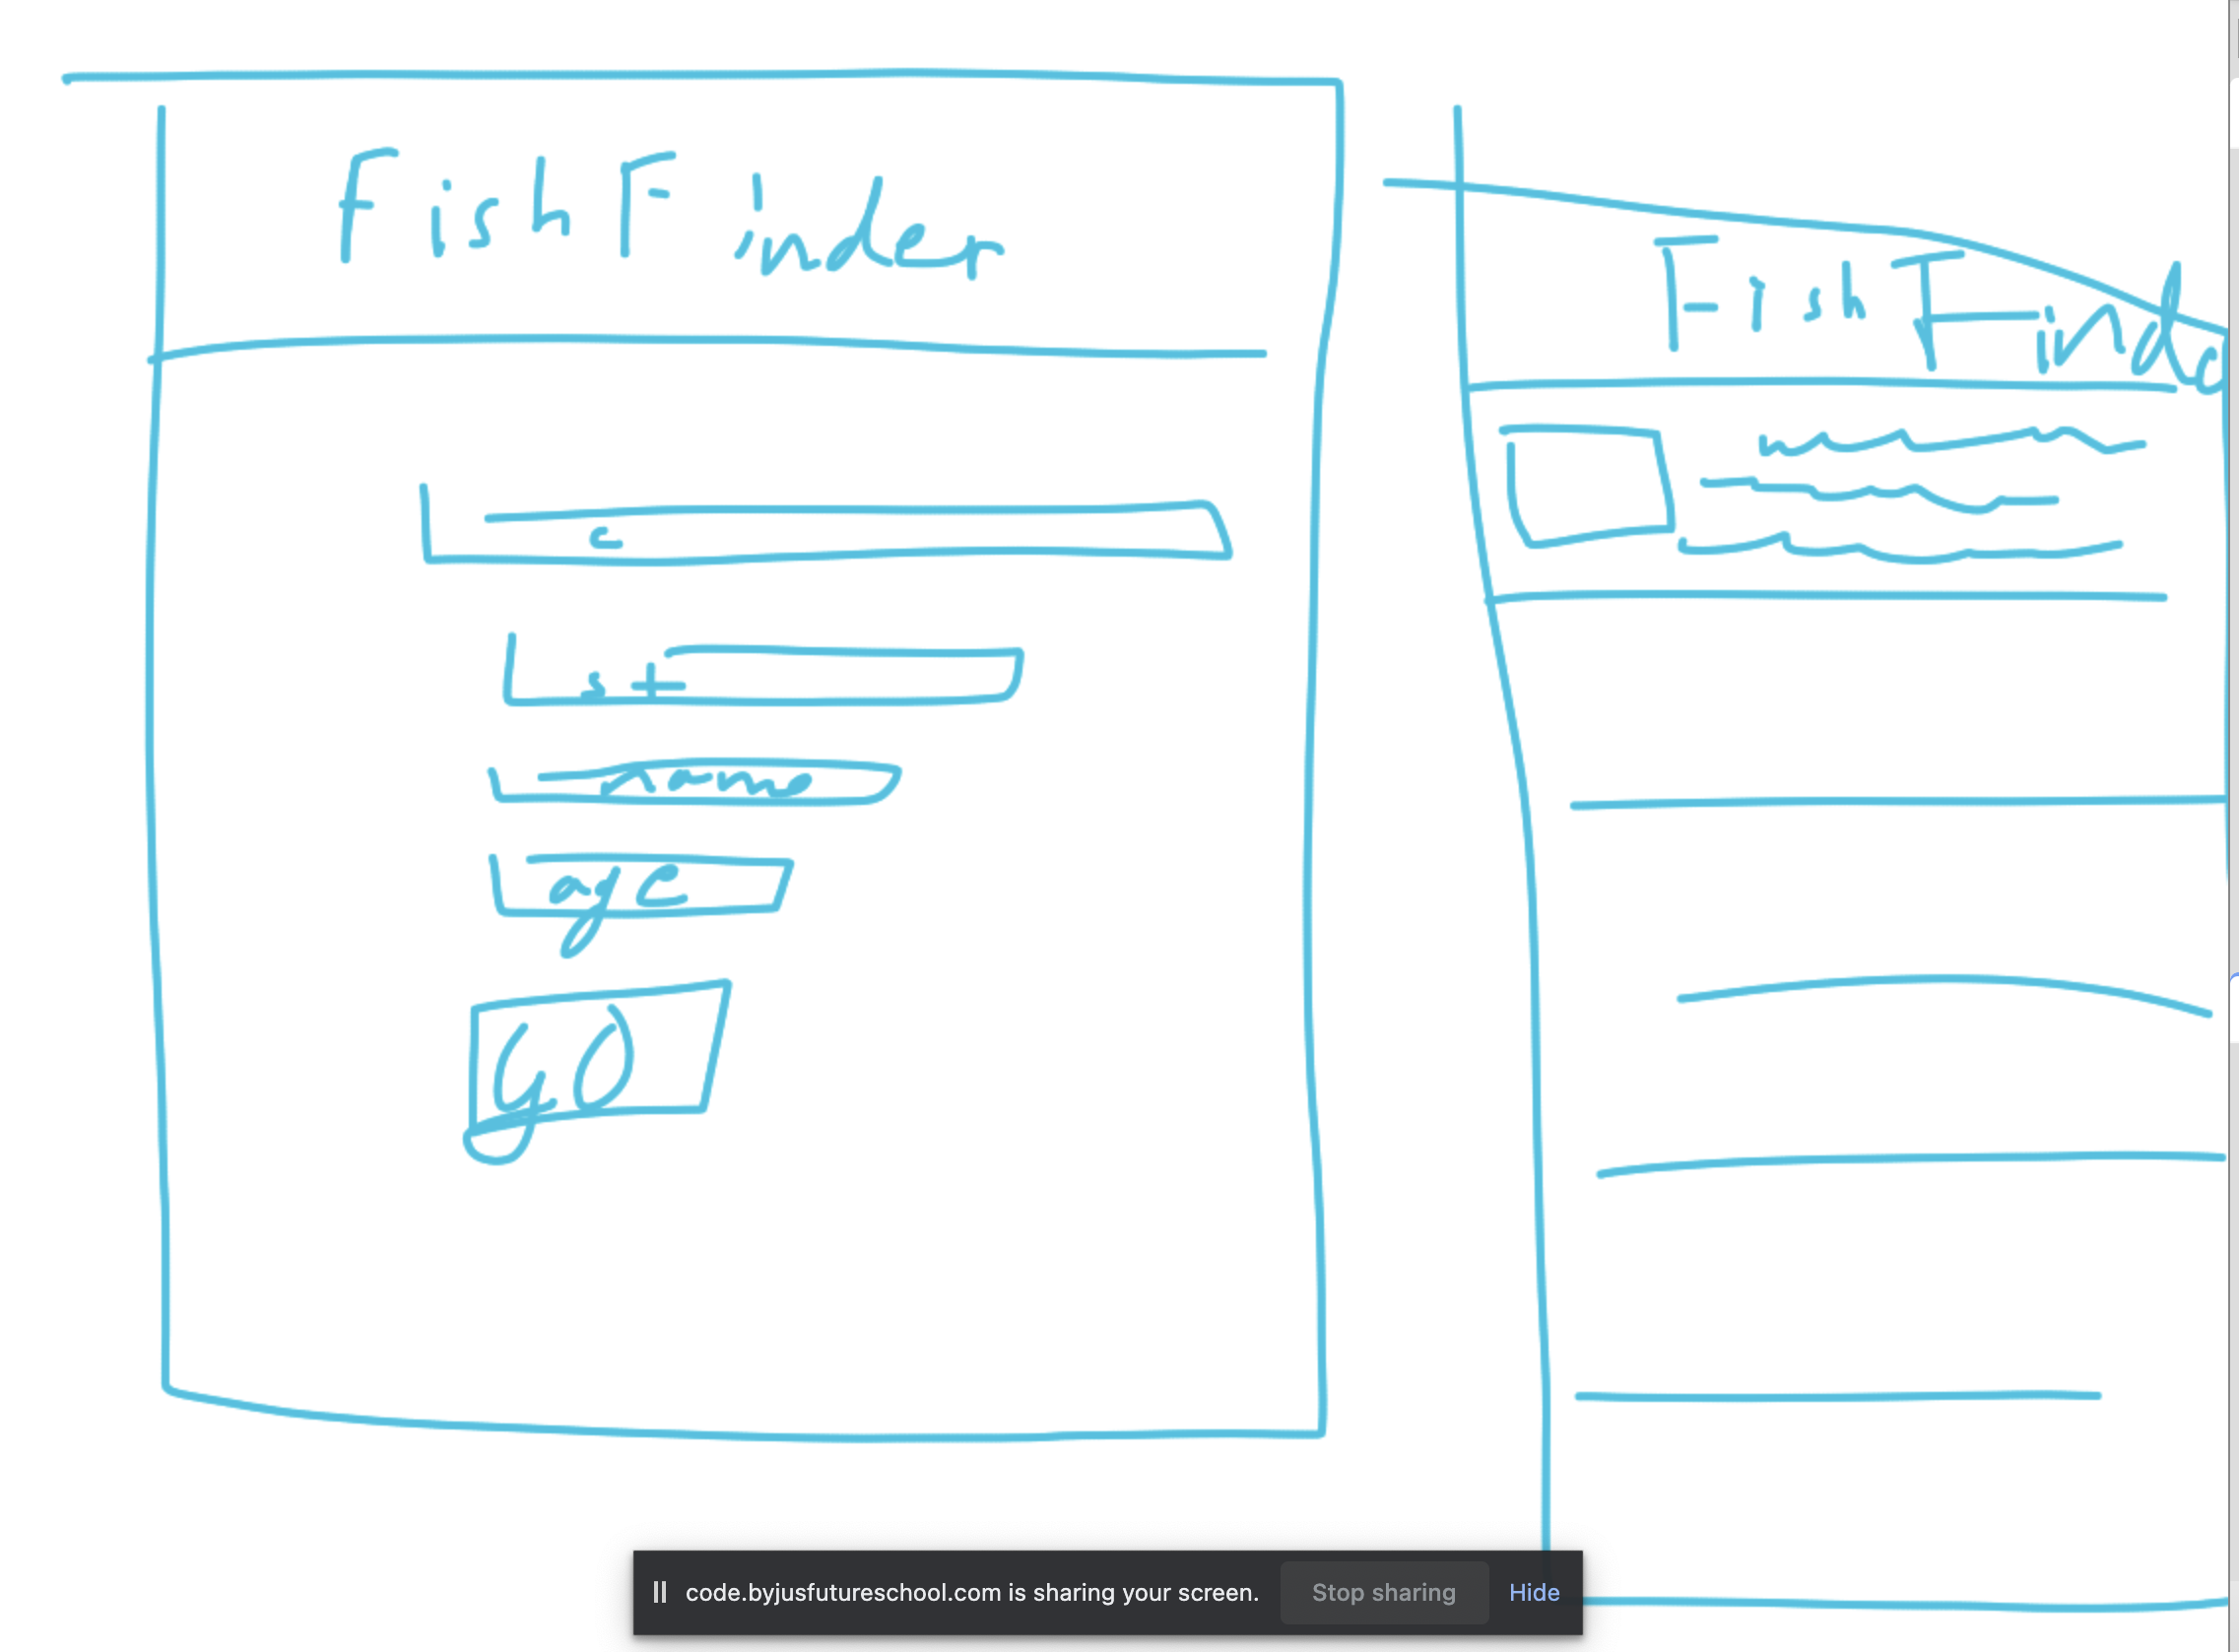 FishFinder
c
st
name
age
go
FishFinde
code.byjusfutureschool.com is sharing your screen. Stop sharing Hide